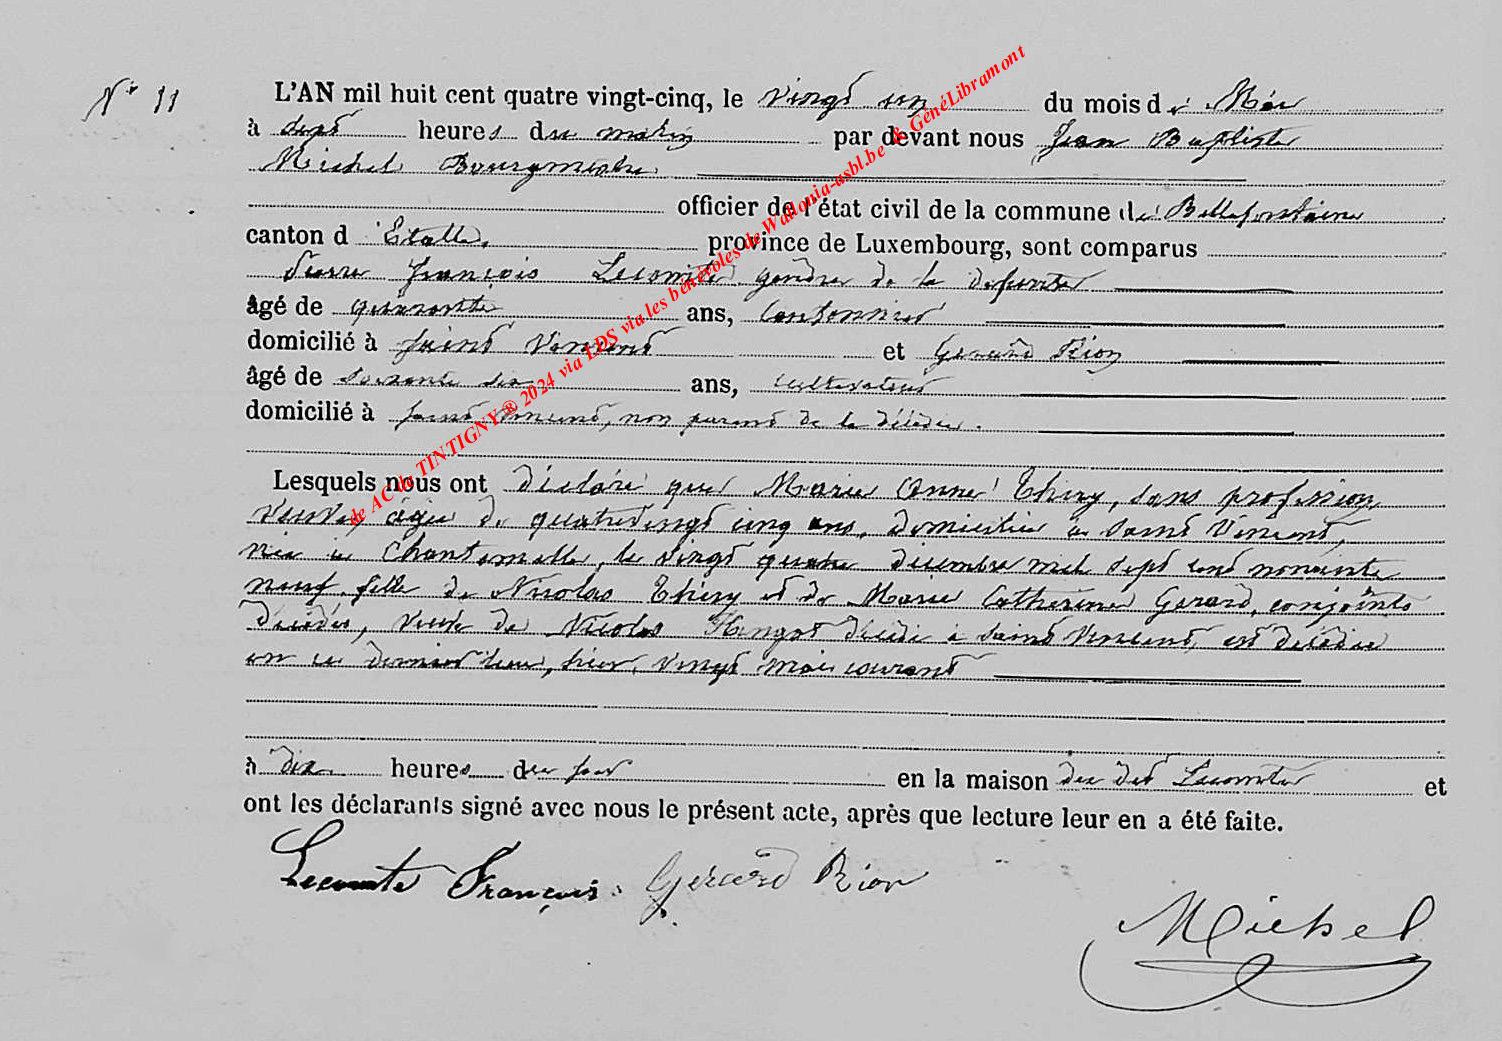 N° 11
L'AN mil huit cent quatre vingt-cinq, le vingt un du mois de Mai
à sept heures du matin par devant nous Jean Baptiste
Michel Bourgmestre
officier de l'état civil de la commune de Bellefontaine
canton d'Etalle, province de Luxembourg, sont comparus
Pierre François Lecomte gendre de la defunte
âgé de quarante ans, Cantonnier
domicilié à Saint Vincent et Gerard Rion
âgé de soixante six ans, cultivateur
domicilié à Saint Vincent, non parent de la décédée.
Lesquels nous ont déclaré que Marie Anne Thiry, sans profession,
veuve, âgée de quatre vingt cinq ans, domiciliée à Saint Vincent,
née à Chantemelle, le vingt quatre décembre mil sept cent nonante
neuf, fille de Nicolas Thiry et de Marie Catherine Gerard, conjoints
décédés, veuve de Nicolas Hengot décédé à Saint Vincent, est décédée
en ce dernier lieu, hier, vingt mai courant
à dix heures du soir en la maison du dit Lecomte et
ont les déclarants signé avec nous le présent acte, après que lecture leur en a été faite.
Lecomte François. Gerard Rion
Michel
de AC de TINTIGNY® 2024 via LDS via les bénévoles de Wallonia-asbl.be & GénéLibramont